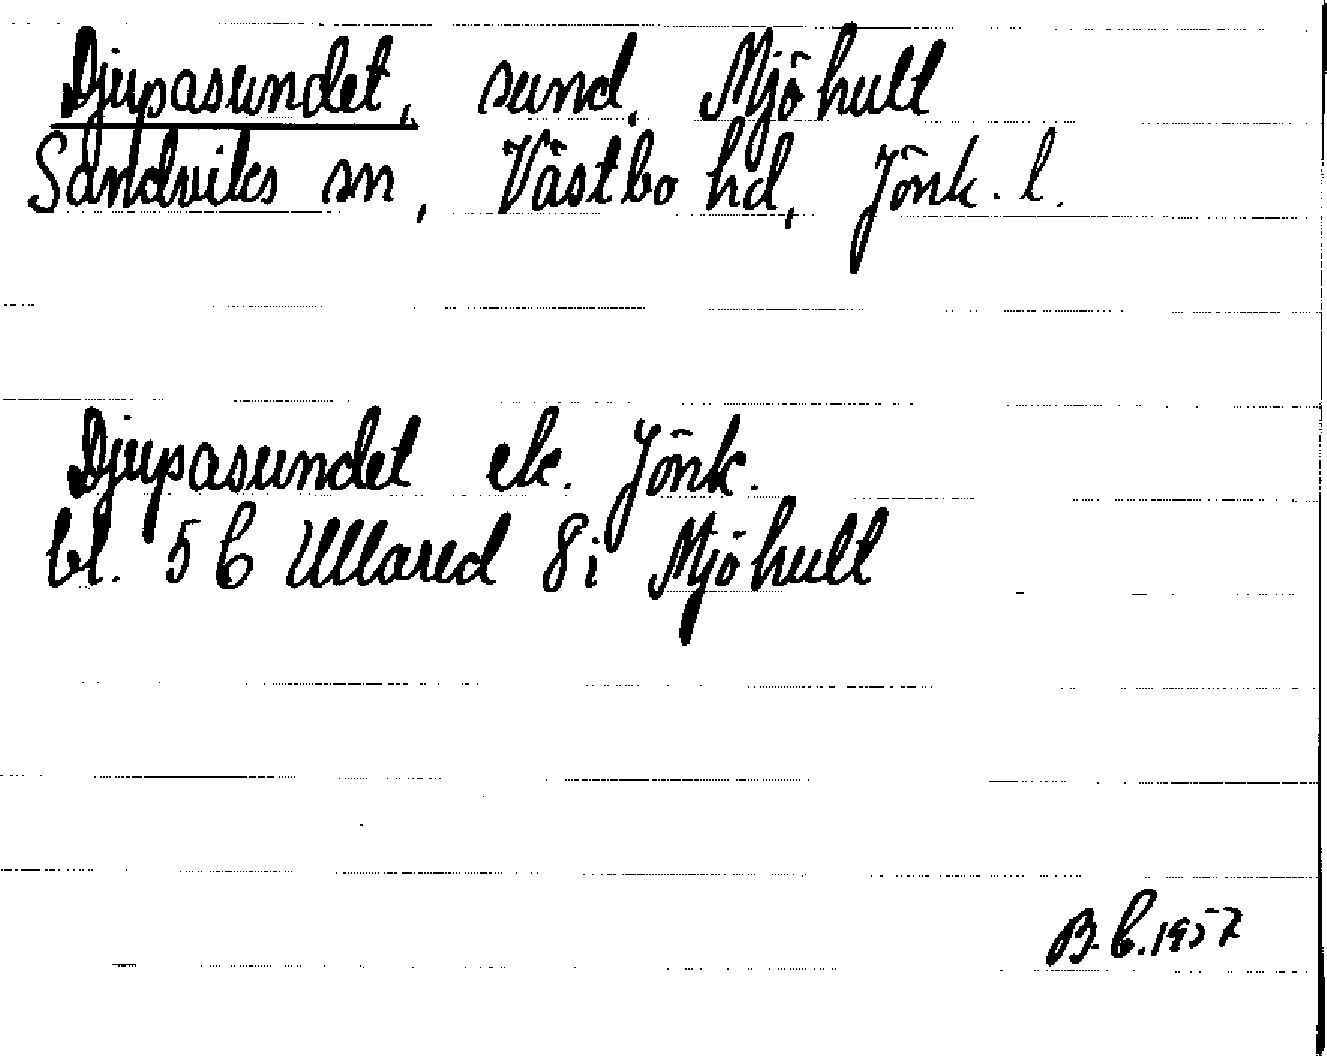 Djupasundet, sund, Mjöhult
Sandviks sn, Västbo hd, Jönk. l.
Djupasundet ek. Jönk.
bl. 5 C Ullared 8i Mjöhult
B. C. 1957